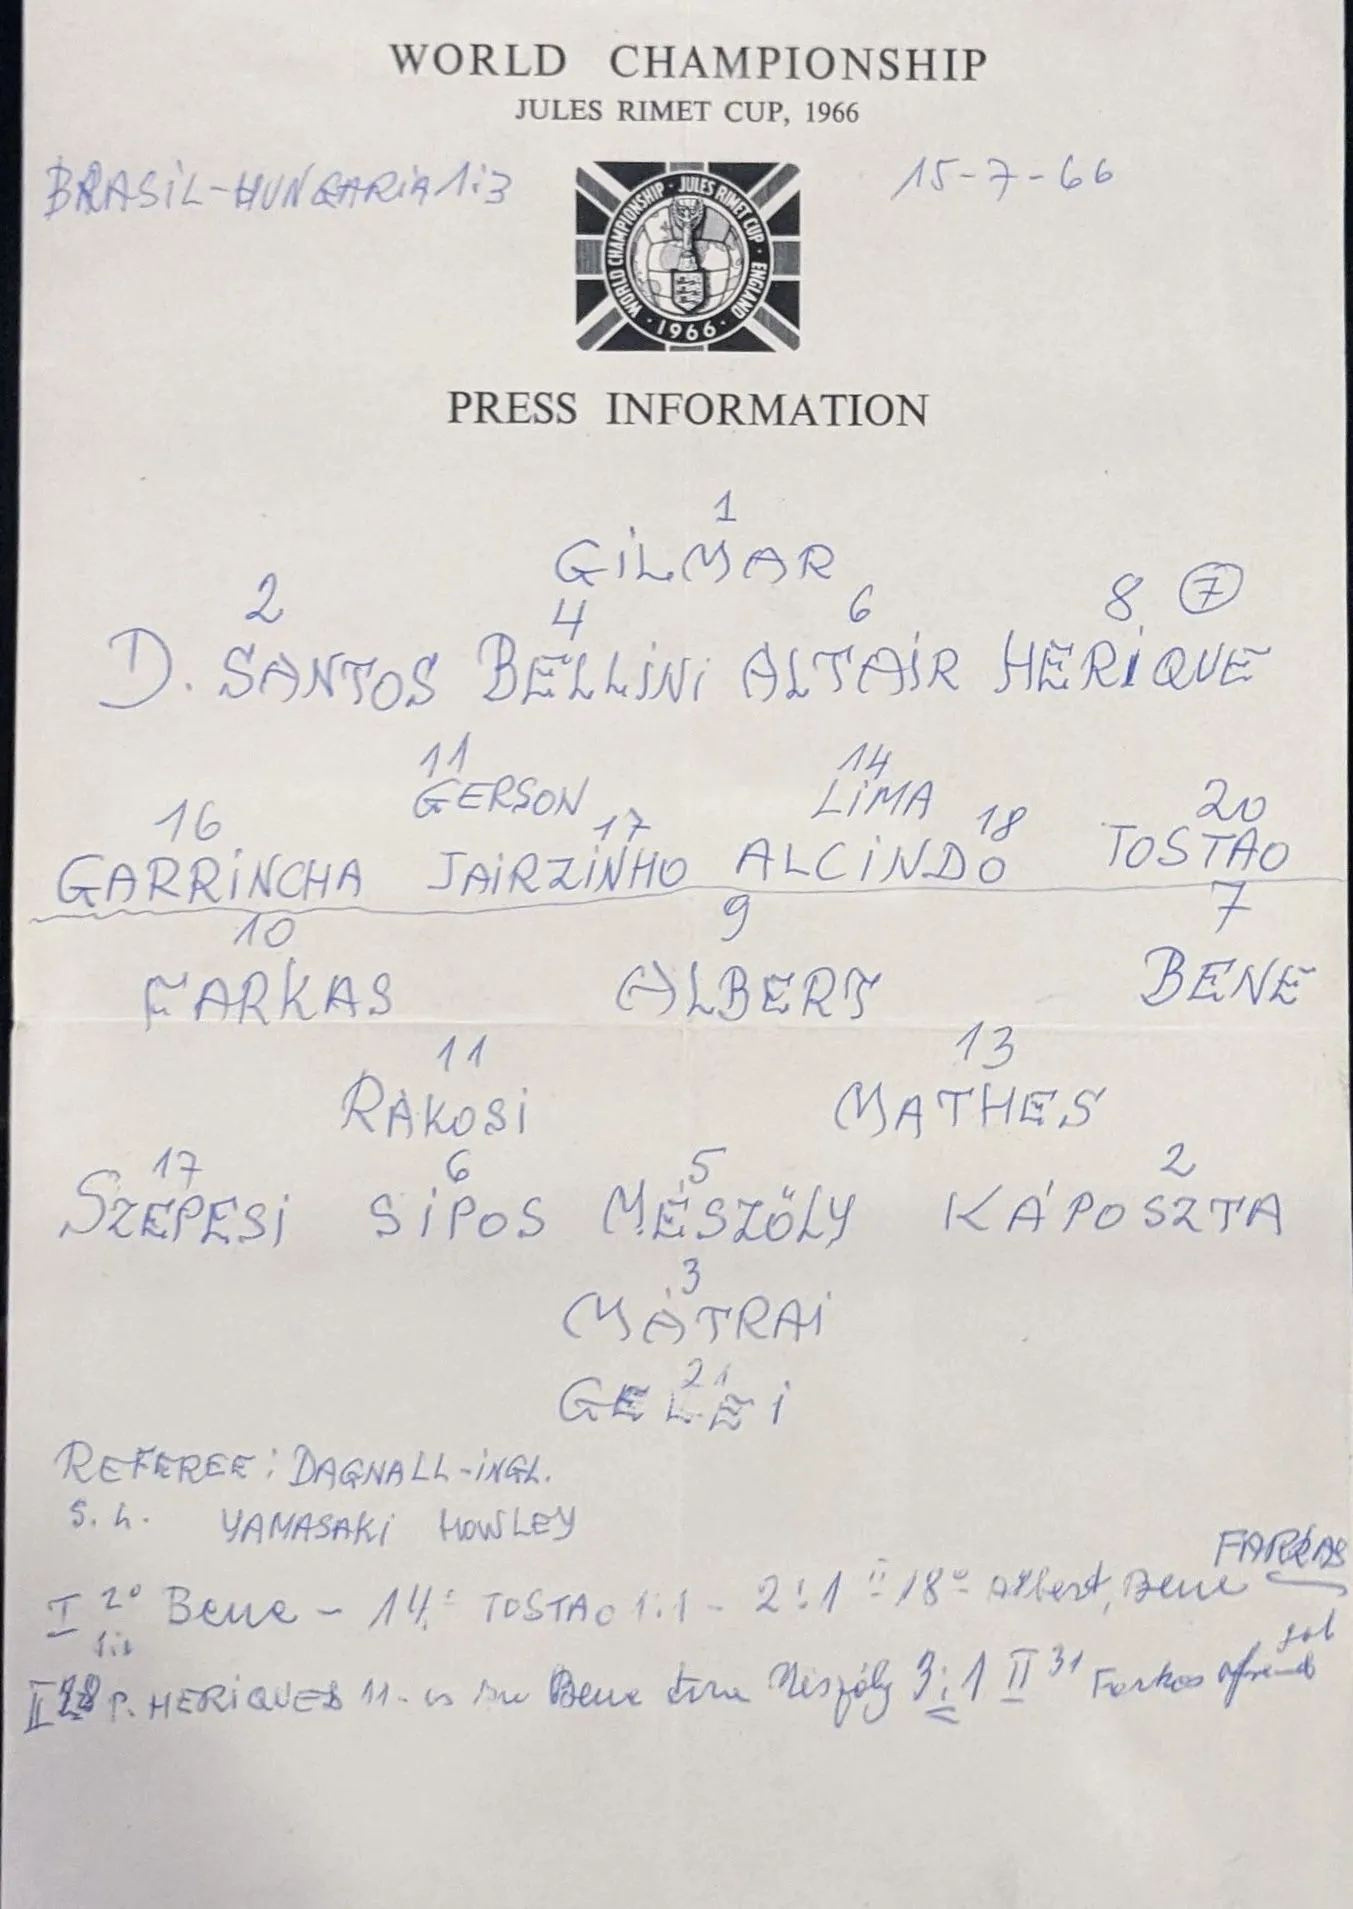 WORLD CHAMPIONSHIP
JULES RIMET CUP, 1966
BRASIL-HUNGARIA 1:3
15-7-66
WORLD CHAMPIONSHIP · JULES RIMET CUP · ENGLAND
· 1966 ·
PRESS INFORMATION
1
GILMAR
2 4 6 8 7
D. SANTOS BELLINI ALTAIR HERIQUE
11 14
GERSON LIMA
16 17 18 20
GARRINCHA JAIRZINHO ALCINDO TOSTAO
10 9 7
FARKAS ALBERT BENE
11 13
RÁKOSI MATHES
17 6 5 2
SZEPESI SIPOS MÉSZÖLY KÁPOSZTA
3
MÁTRAI
21
GELEI
REFEREE: DAGNALL-INGL.
S. h. YAMASAKI HOWLEY
FARKAS
I 2° Bene - 14. TOSTAO 1:1 - 2:1 II 18° Albert, Bene
II 28 P. HERIQUES 11- Bene Mészöly 3:1 II 31 Farkas